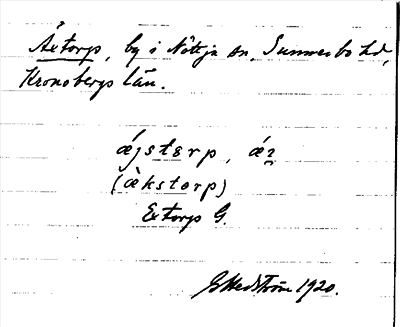 Äxtorp, by i Nöttja sn, Sunnerbo hd,
Kronobergs län.
ǽjstɛrp, ǽɂ
(æ̀kstorp)
Extorp G.
G Hedström 1920.